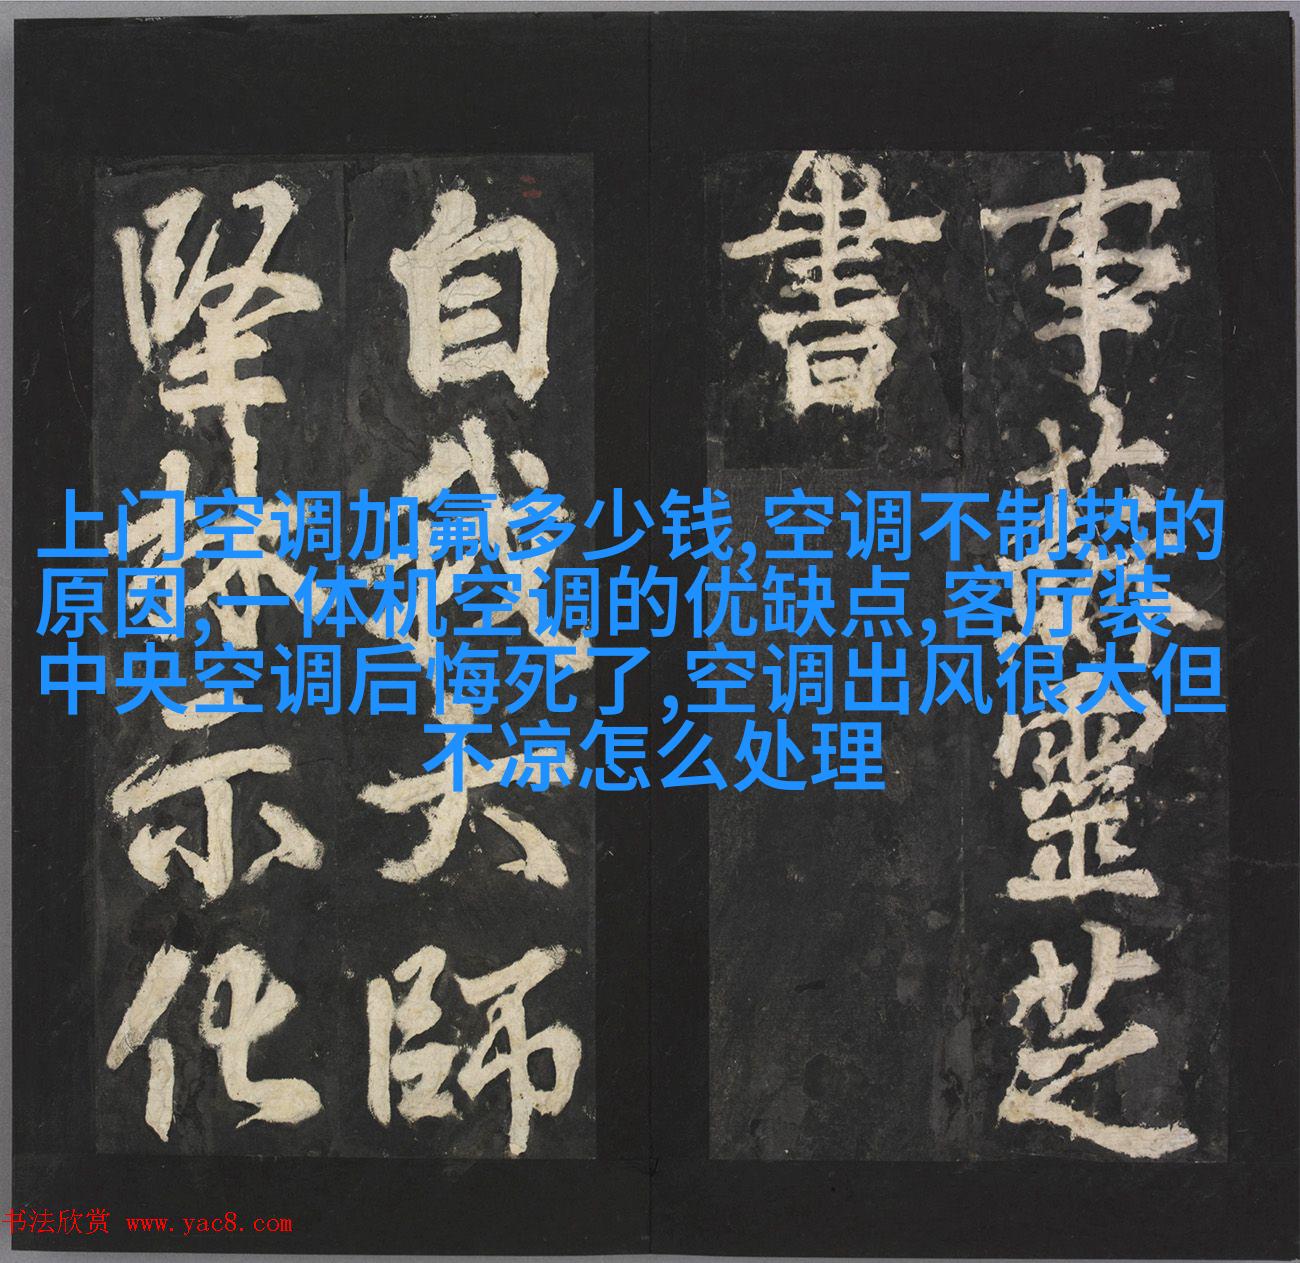 上门空调加氟多少钱,空调不制热的
原因,一体机空调的优缺点,客厅装
中央空调后悔死了,空调出风很大但
不凉怎么处理
事蘇靈芝
書
自我大師
堅林示化
书法欣赏 www.yac8.com